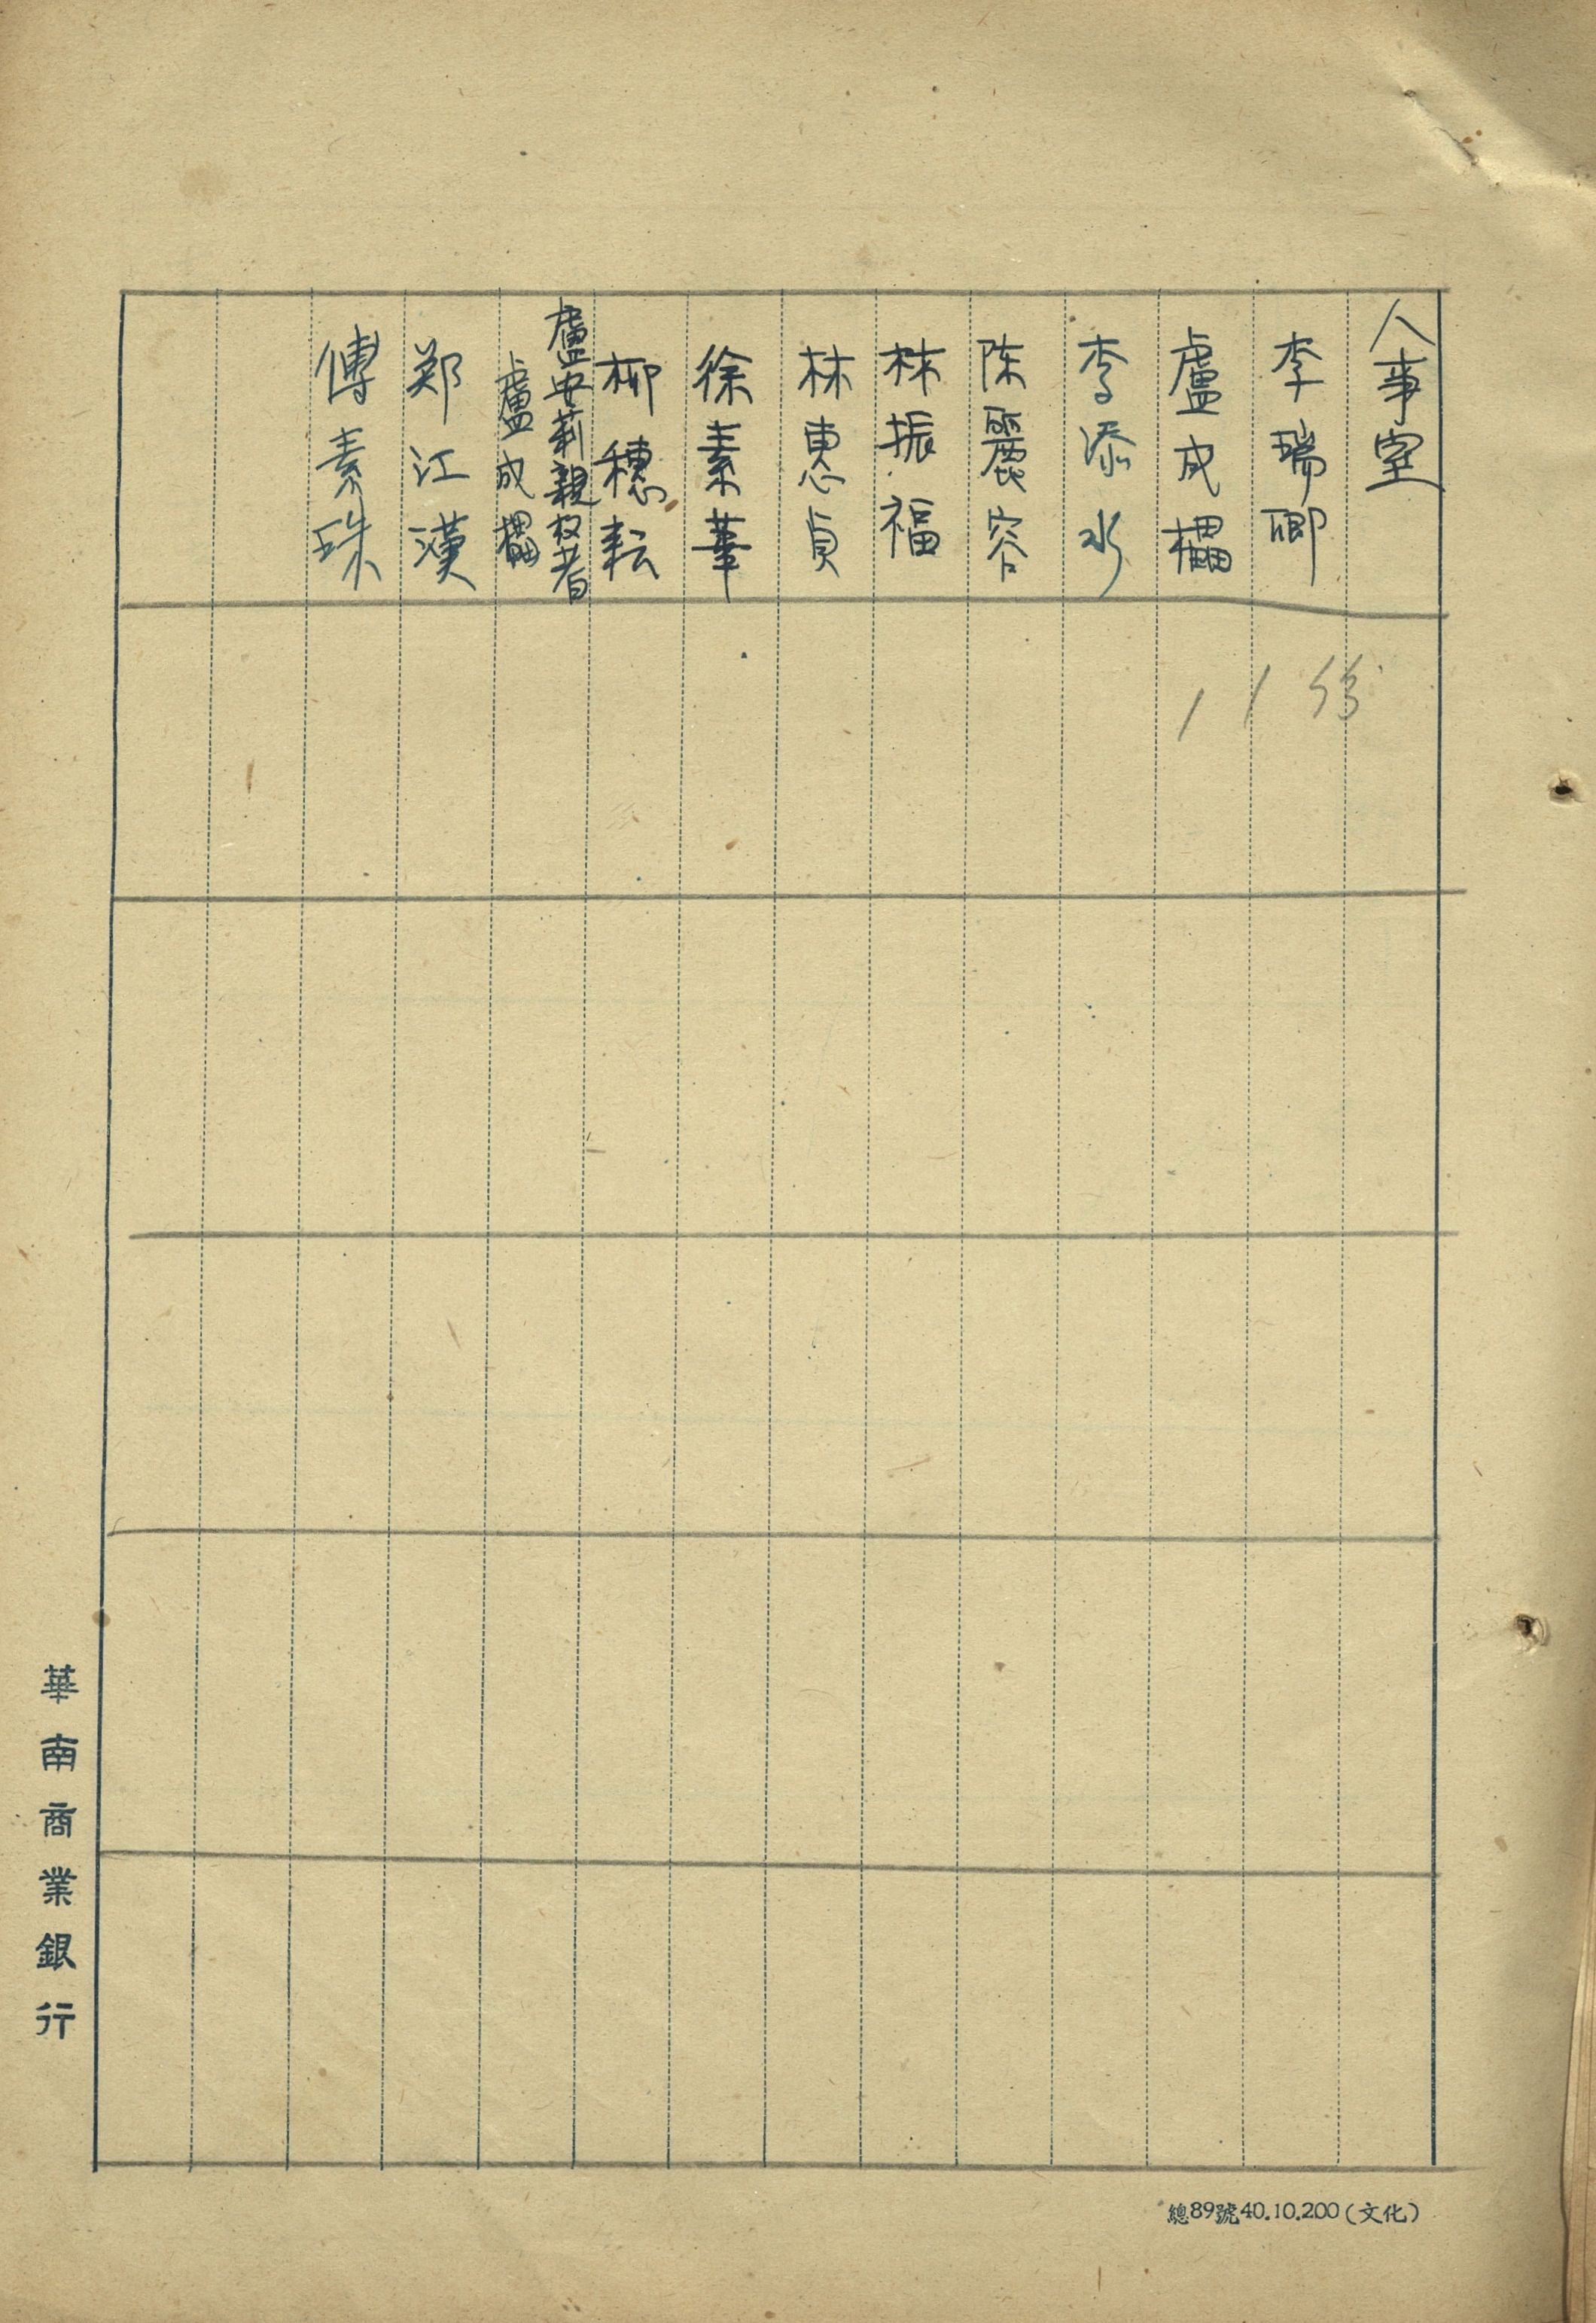 人事室
李瑞卿
盧成櫑
李添水
陈麗容
林振福
林惠貞
徐素華
柳穗耘
盧安莉親权者
盧成櫑
郑江漢
傅素珠
11份
華南商業銀行
總89號40.10.200(文化)